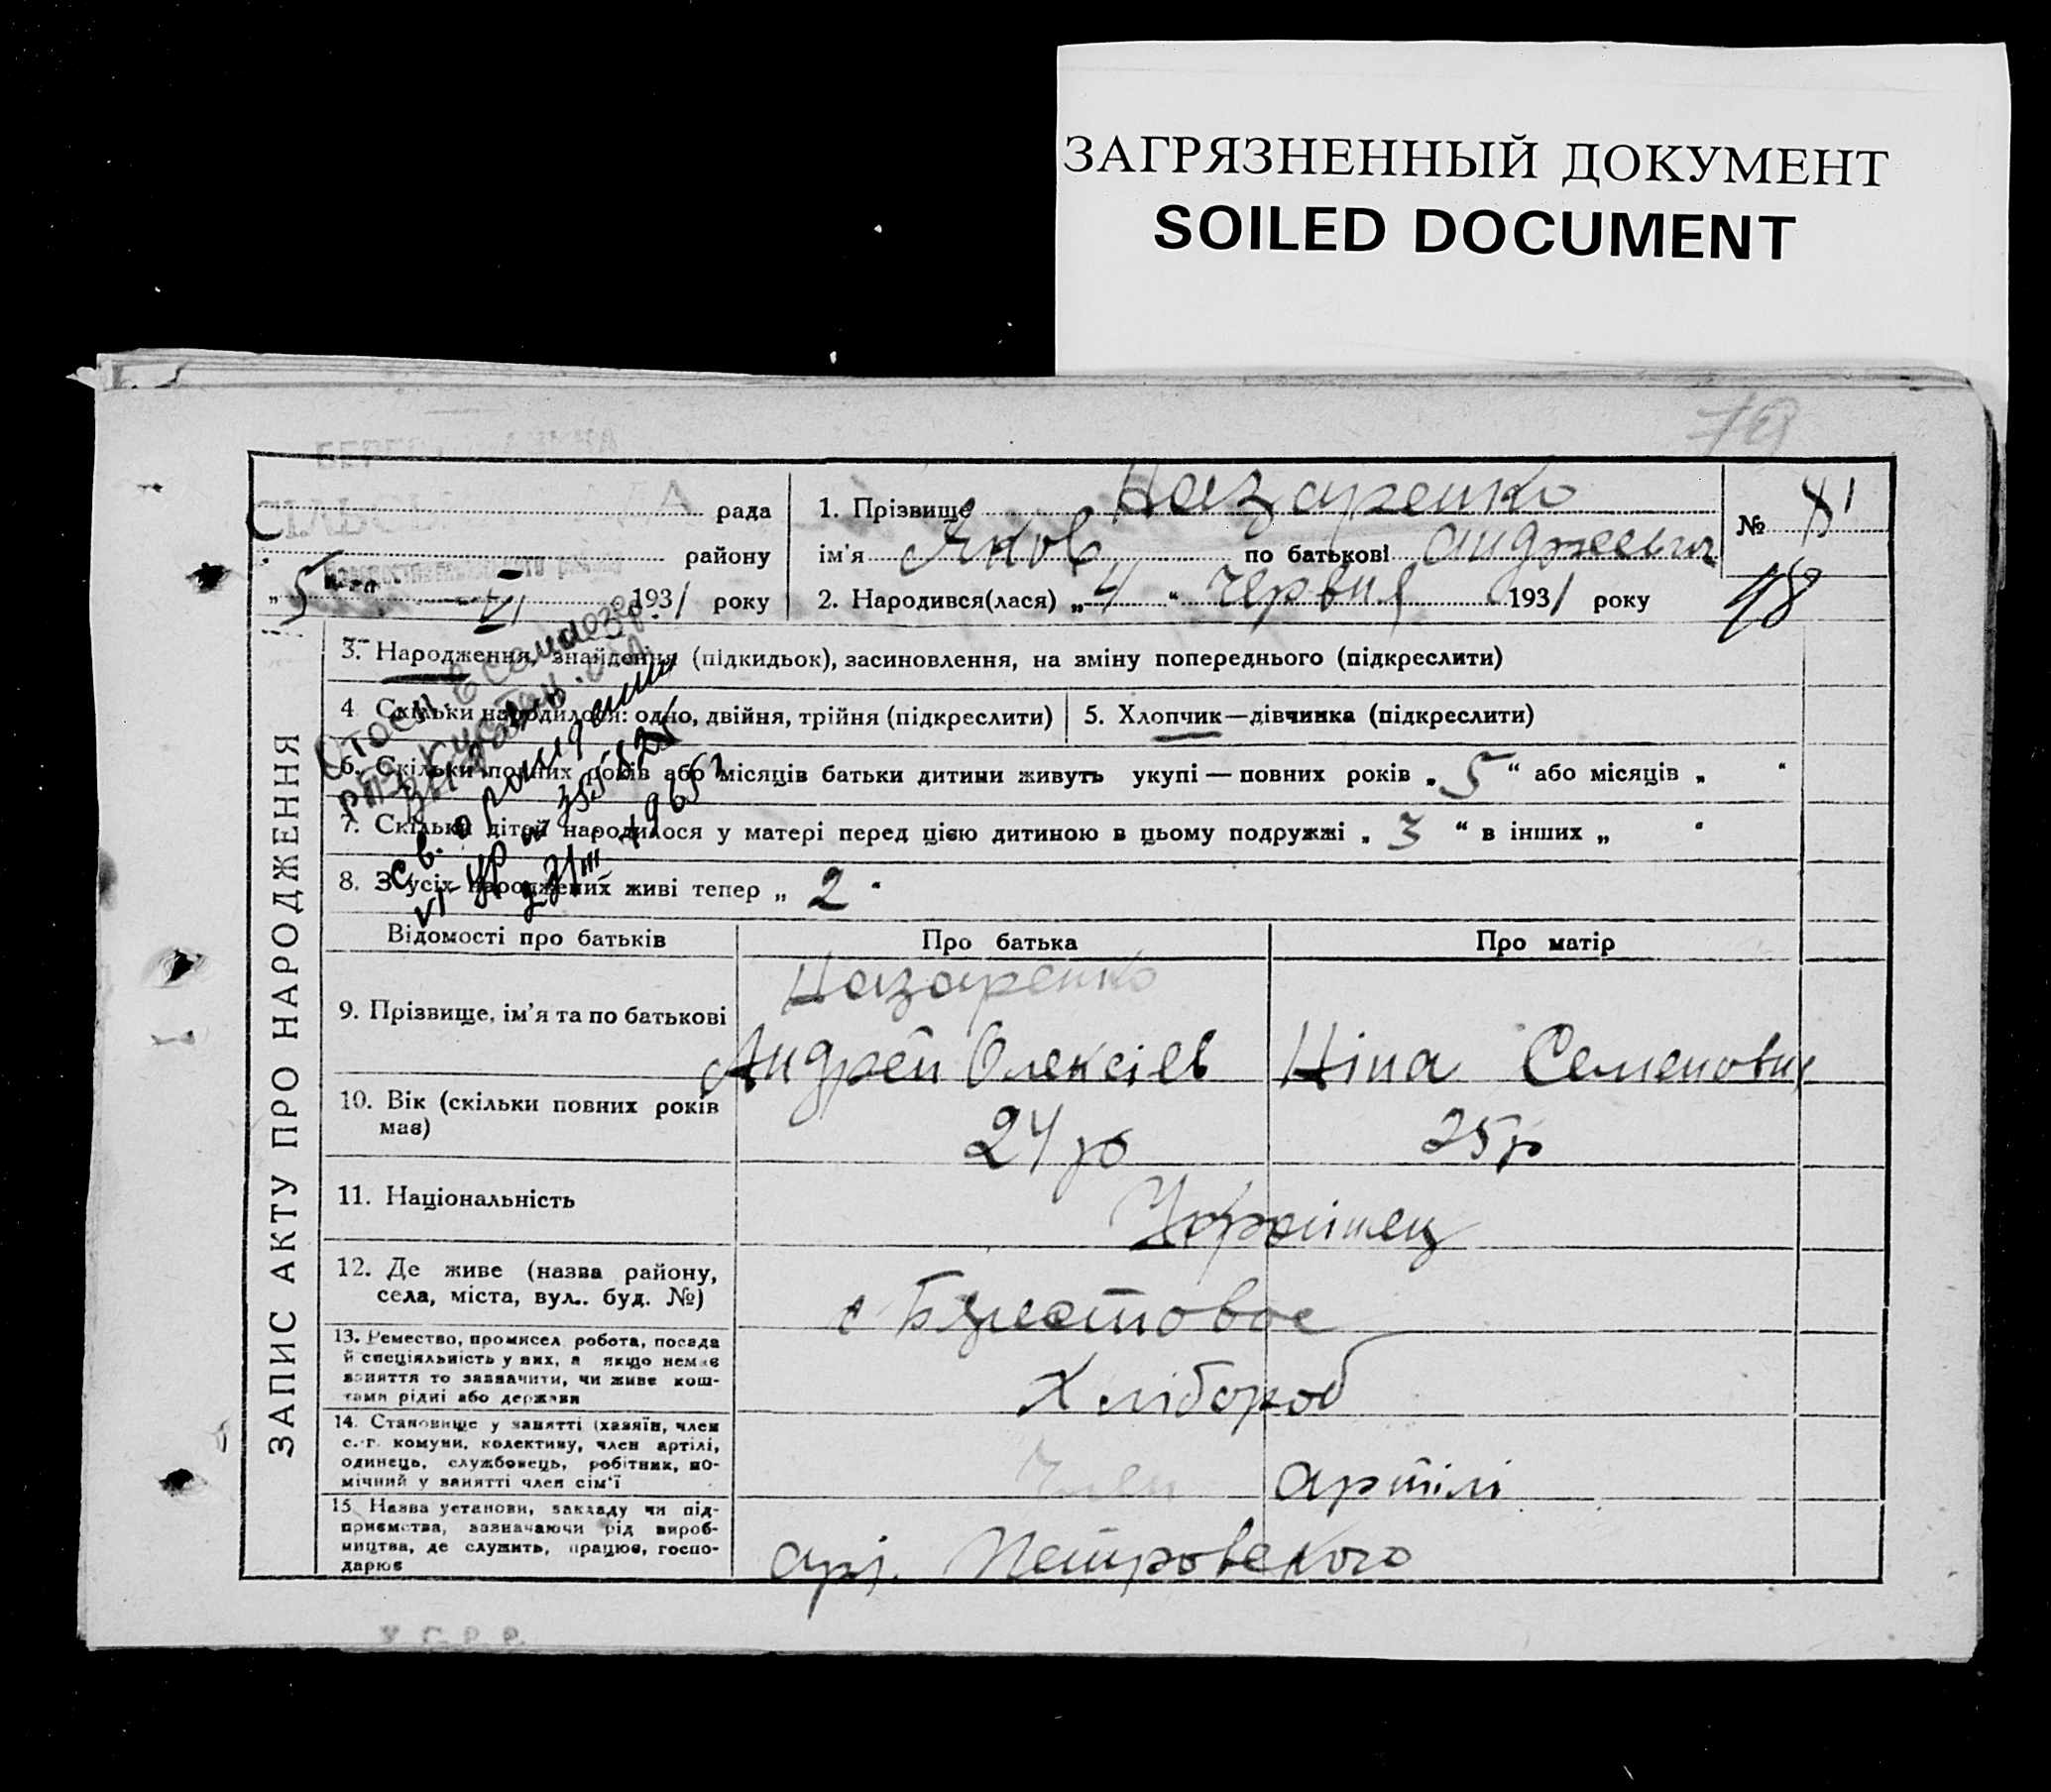 ЗАГРЯЗНЕННЫЙ ДОКУМЕНТ
SOILED DOCUMENT
79
рада
району
„5“ го VI 1931 року
1. Прізвище Назаренко
ім'я Яков по батькові
2. Народився(лася) „4“ червня 1931 року
№ 81
98
ЗАПИС АКТУ ПРО НАРОДЖЕННЯ
3. Народження, знайдення (підкидьок), засиновлення, на зміну попереднього (підкреслити)
4. Скільки народилося: одно, двійня, трійня (підкреслити)
5. Хлопчик—дівчинка (підкреслити)
6. Скільки повних років або місяців батьки дитини живуть укупі — повних років „5“ або місяців „ “
7. Скільки дітей народилося у матері перед цією дитиною в цьому подружжі „3“ в інших „ “
8. З усіх народжених живі тепер „2“
св. о рождении
Відомості про батьків
Про батька
Про матір
9. Прізвище, ім'я та по батькові
Назаренко
Андрей Олексіев
Ніна Семеновна
10. Вік (скільки повних років має)
24 р
25 р
11. Національність
Українец
12. Де живе (назва району, села, міста, вул.. буд. №)
с Берестовое
13. Ремество, промисел робота, посада й спеціяльність у них, а якщо немає заняття то зазначити, чи живе коштами рідні або держави
Хлібороб
14. Становище у занятті (хазяїн, член с.-г. комуни, колективу, член артілі, одинець, службовець, робітник, помічний у занятті член сім'ї
Член артілі
15. Назва установи, закладу чи підприємства, зазначаючи рід виробництва, де служить, працює, господарює
арт. Петровского
У.С.Р.Р.